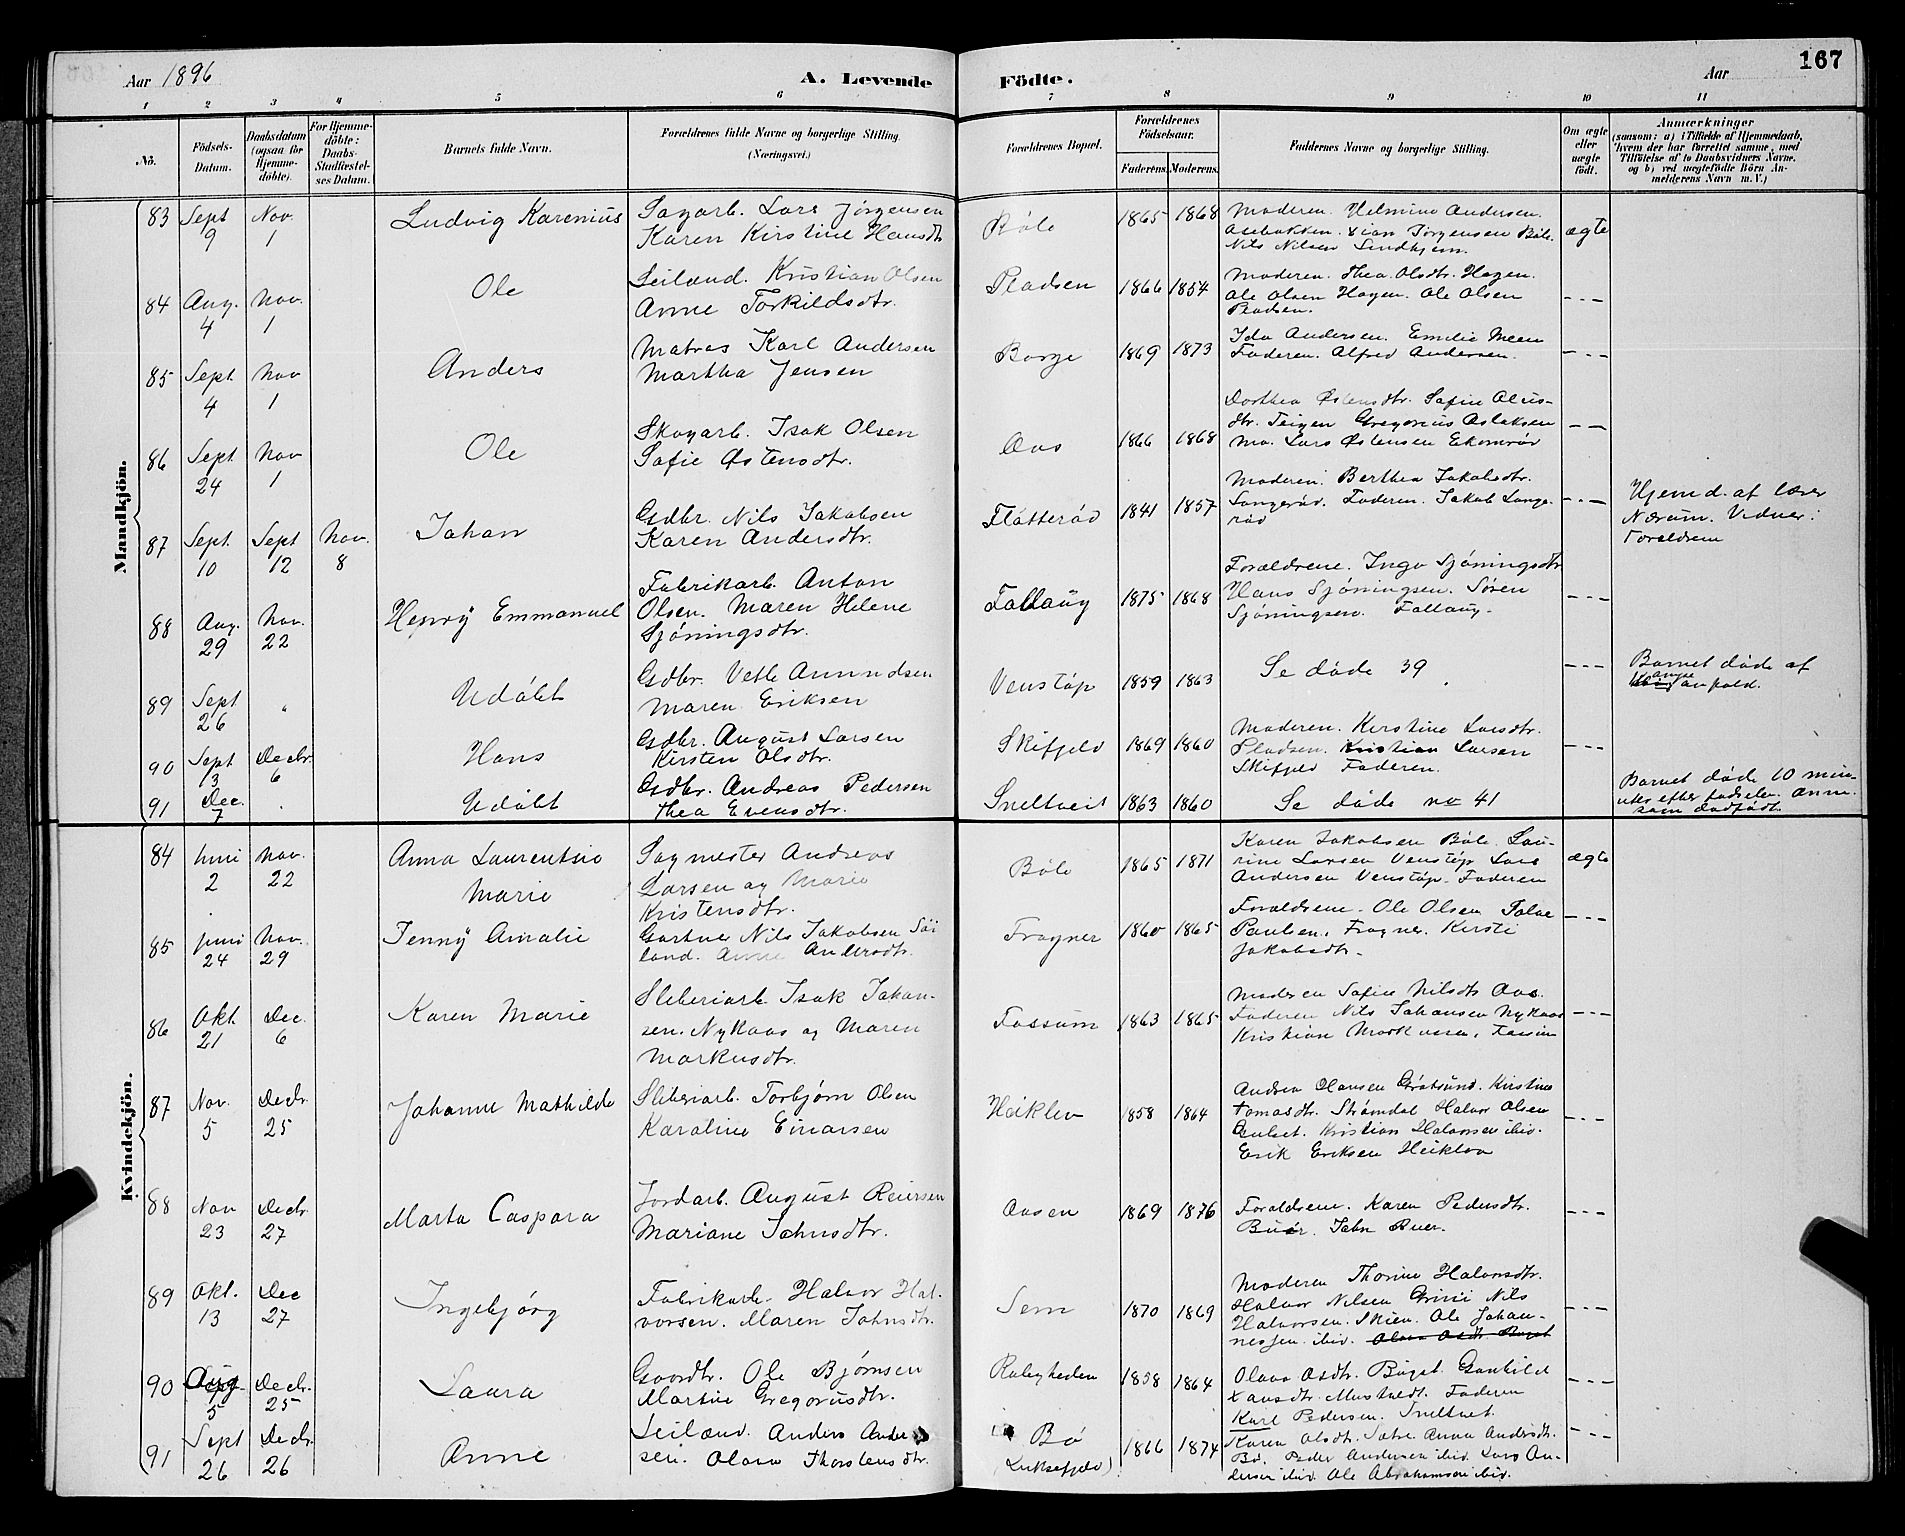 Aar 1896
A. Levende Födte.
Aar
167
1 2 3 4 5 6 7 8 9 10 11
No.
Födsels-Datum.
Daabsdatum (ogsaa for Hjemme-döbte).
For Hjemme-döbte: Daabs-Stadfæstel-ses Datum.
Barnets fulde Navn.
Forældrenes fulde Navne og borgerlige Stilling. (Næringsvei.)
Forældrenes Bopæl.
Forældrenes Födselsaar.
Faderens. Moderens.
Faddernes Navne og borgerlige Stilling.
Om ægte eller uægte födt.
Anmærkninger
(saasom: a) i Tilfælde af Hjemmedaab, hvem der har forrettet samme, med Tilföielse af to Daabsvidners Navne, og b) ved uægtefödte Börn An-melderens Navn m. V.)
Mandkjön.
83 Sept 9 Nov. 1 Ludvig Karenius
Sagarb. Lars Jørgensen
Karen Kirstine Hansdtr
Bøle 1865 1868
Moderen. Helmine Andersen.
Aasbakken. Xian Jørgensen Bøle.
Nils Nilsen Lindhjem.
ægte
84 Aug. 4 Nov. 1 Ole
Leilænd. Kristian Olsen
Anne Torkildsdtr.
Pladsen 1866 1854
Moderen. Thea Olsdtr. Hagen.
Ole Olsen Hagen. Ole Olsen
Pladsen.
85 Sept. 4 Nov 1 Anders
Matros Karl Andersen
Martha Jensen
Borge 1869 1873
Ida Andersen. Emilie Meen
Faderen. Alfred Andersen.
86 Sept. 24 Nov 1 Ole
Skogarb. Isak Olsen
Sofie Østensdtr.
Aas 1866 1868
Dorthea Østensdtr. Sofie Olus-
dtr. Teigen Gregorius Aslaksen
Mo. Lars Østensen Ekornrød
87 Sept. 10 Sept 12 Nov. 8 Johan
Gdbr. Nils Jakobsen
Karen Andersdtr.
Flåtterød 1841 1857
Moderen. Berthea Jakobsdtr.
Langerød. Faderen. Jakob Lange-
rød
Hjemd. af lærer
Nærum. Vidner:
Foreldrene
88 Aug. 29 Nov. 22 Henry Emmanuel
Fabrikarb. Anton
Olsen. Maren Helene
Sjøningsdtr.
Follaug 1875 1868
Forældrene. Inga Sjøningsdtr
Hans Sjøningsen. Søren
Sjøningsen. Follaug.
89 Sept 26 " Udøbt
Gdbr. Vetle Amundsen
Maren Eriksen
Venstøp 1859 1863
Se døde 39
Barnet døde af
90 Sept 3 Decbr. 6 Hans
Gdbr. August Larsen
Kirsten Olsdtr.
Skifjeld 1869 1860
Moderen. Kirstine Larsdtr.
Pladsen. Kristian Larsen
Skifjeld Faderen.
91 Dec. 7 " Udøbt
Gdbr. Andreas Pedersen
Thea Evensdtr.
Sneltveit 1863 1860
Se døde no 41
Barnet døde 10 min-
uter efter fødselen. Anm.
som dødfødt.
Kvindekjön.
84 Juni 2 Nov. 22 Anna Laurentsie
Marie
Sagmester Andreas
Larsen og Marie
Kristensdtr.
Bøle 1865 1871
Karen Jakobsen Bøle. Lau-
rine Larsen Venstøp Lars
Andersen Venstøp. Faderen
ægte
85 Juni 24 Nov. 29 Jenny Amalie
Gartner Nils Jakobsen Søi
land. Anne Andersdtr.
Frogner 1860 1865
Forældrene. Ole Olsen
Paulsen. Frogner. Kirsti
Jakobsdtr.
86 Okt. 21 Dec. 6 Karen Marie
Sliberiarb. Isak Johan-
sen. Nykaas og Maren
Markusdtr.
Fossum 1863 1865
Moderen Sofie Nilsdtr Aas.
Faderen Nils Johansen Nykaas
Kristian
87 Nov. 5 Decbr. 25 Johanne Mathilde
Sliberiarb. Torbjørn Olsen
Karoline Einarsen
Heiklev 1858 1864
Andrea Olausen Gråtsund. Kirstine
Tomasdtr. Strømdal Halvor Olsen
Gulset. Kristian Halvorsen ibid.
Erik Eriksen Heiklev
88 Nov 23 Decbr. 27 Marta Caspara
Jordarb. August Reiersen
Mariane Johnsdtr.
Aasen 1869 1876
Foreldrene. Karen Pedersdtr.
Buer. John Buer.
89 Okt. 13 Dec 27 Ingebjørg
Fabrikarb. Halvor Hal-
vorsen. Maren Johnsdtr.
Sem 1870 1869
Moderen Thorine Halvorsdtr.
Halvor Nilsen Grini Nils
Halvorsen. Skien. Ole Johan-
nessen. ibid.
90 Aug 5 Decbr. 25 Laura
Gaardbr. Ole Bjørnsen
Martine Gregoriusdtr.
Rabygheden 1858 1864
Olava Asdtr. Buget Gunhild
Xansdtr. Mustvedt. Faderen
Karl Pedersen. Sneltvet.
91 Sept 26 Decbr. 26 Anne
Leilænd. Anders Ander
sen. Olava Thorstensdtr.
Bø
(Luksefjeld)
1866 1874
Karen Olsdtr. Sætre Anna Andersdtr.
Bø. Peder Andersen ibid. Lars An-
dersen ibid. Ole Abrahamsen ibid.